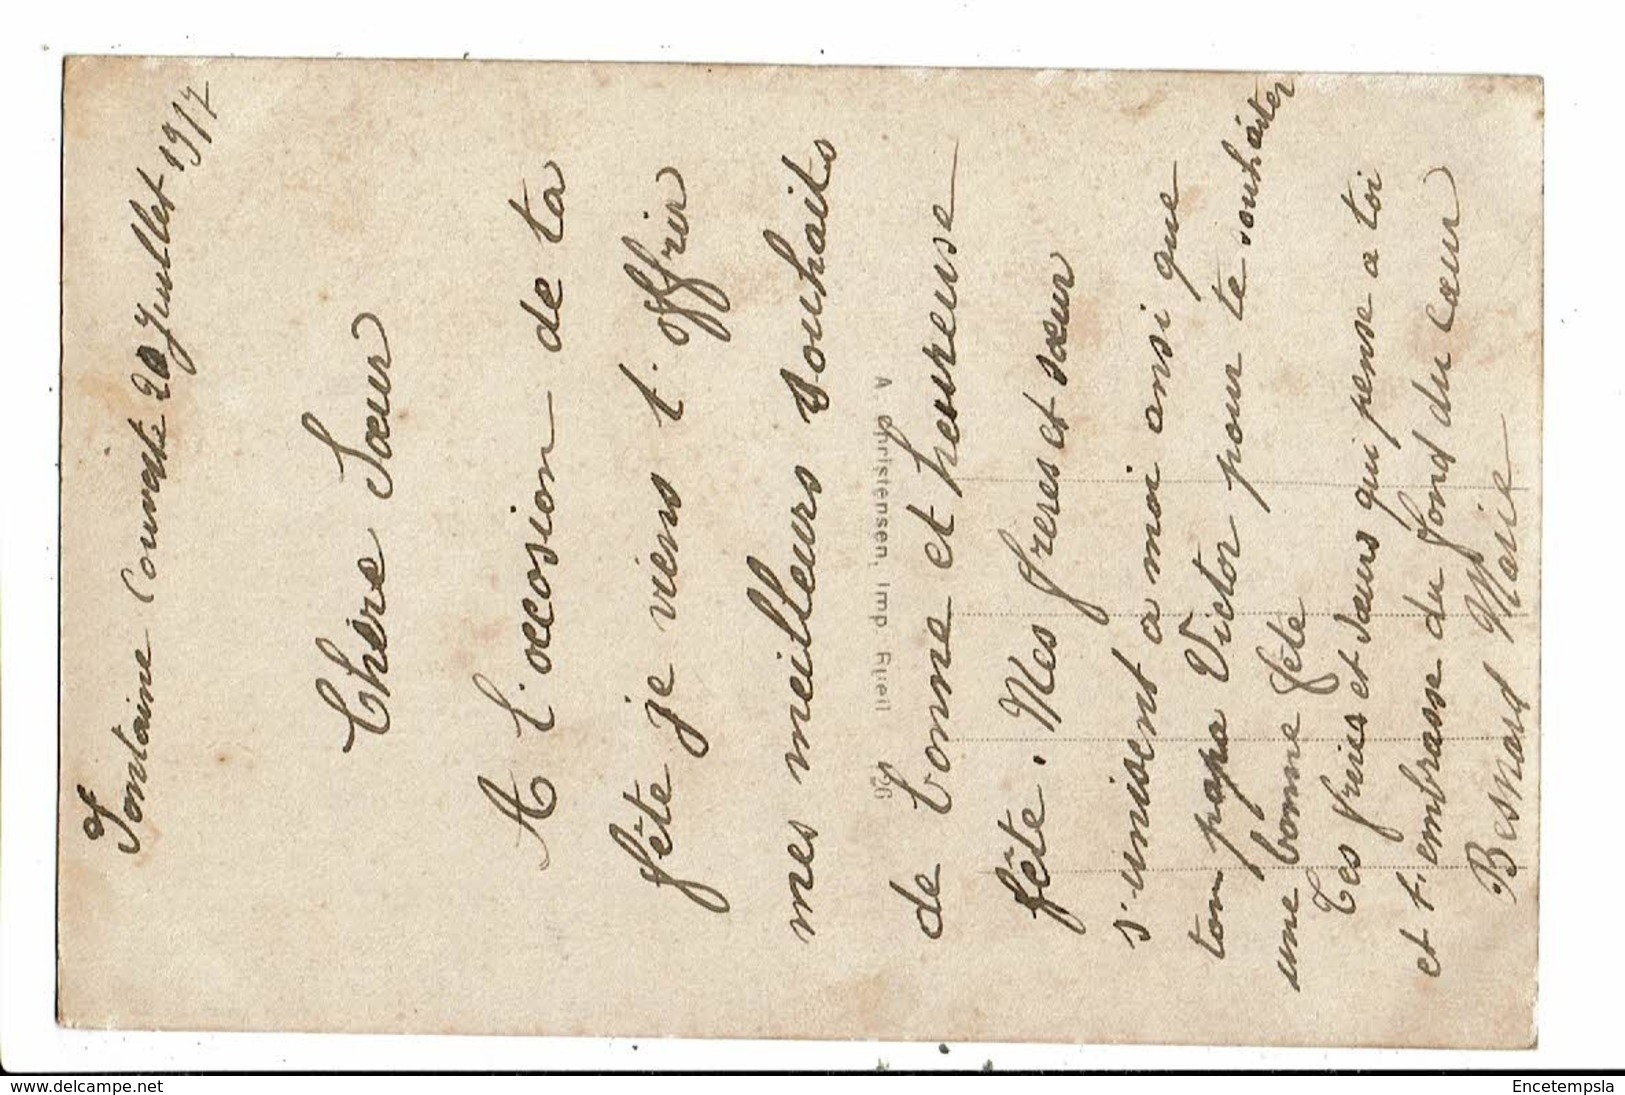 Fontaine Couverte 20 Juillet 1917
Chère Sœur
A l'occosion de ta
fête je viens t'offrir
mes meilleurs souhaits
A. Christensen, Imp. Rueil
de bonne et heureuse
fête. Mes frères et sœur
s'unissent a moi ansi que
ton papa Victor pour te souhaiter
une bonne fête
Tes frères et sœurs qui pense a toi
et t'embrasse du fond du cœur
Besnard Marie
www.delcampe.net
Encetempsla